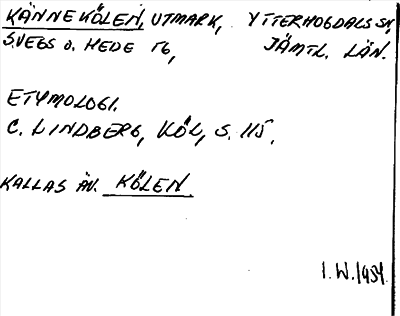 KÄNNEKÖLEN, UTMARK, YTTERHOGDALS SN,
SVEGS O. HEDE TG, JÄMTL. LÄN.
ETYMOLOGI.
C. LINDBERG, KÖL, S. 115.
KALLAS ÄV. KÖLEN
I.W. 1954.